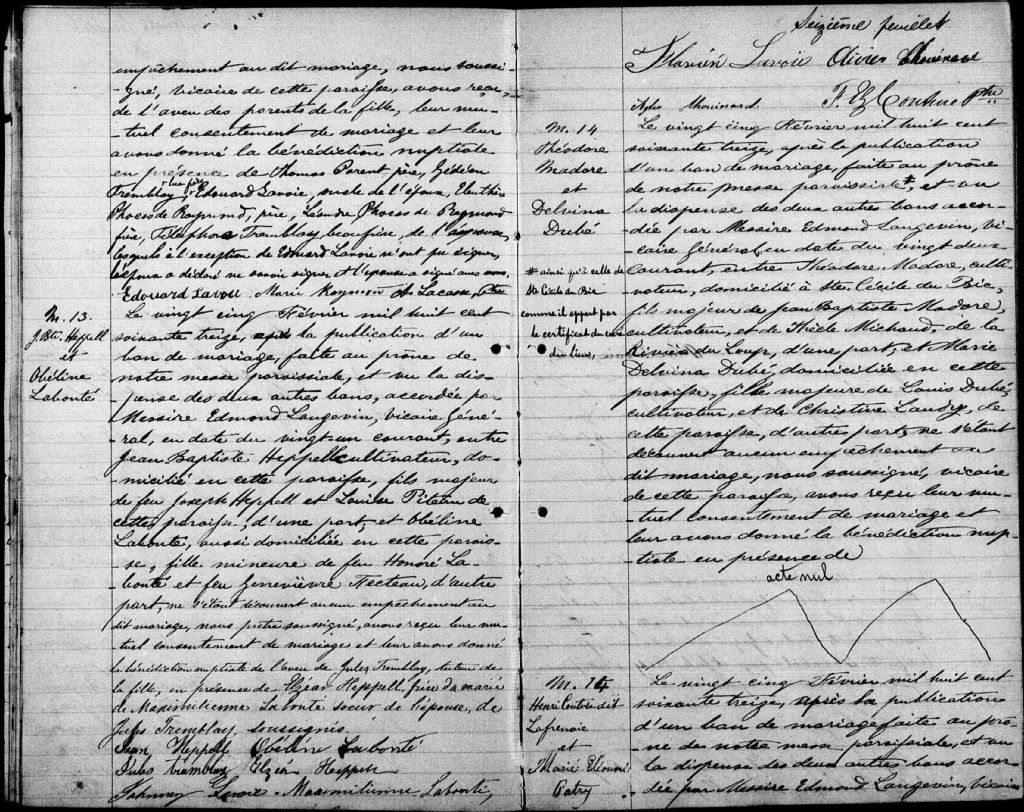 empêchement au dit mariage, nous soussi-
-gné, vicaire de cette paroisse, avons reçu
de l'aveu des parents de la fille, leur mu-
-tuel consentement de mariage et leur
avons donné la bénédiction nuptiale
en présence de Thomas Parent, père, Gédéon
Tremblay, Edouard Lavoie, oncle de l'époux,
Raymond, père, Léandre Raymond
frère, Tremblay, beaufrère, de
lesquels à l'exception de Edouard Lavoie n'ont pu signer,
l'époux a déclaré ne savoir signer, et l'épouse a signé avec nous.
Edouard Lavoie Marie Raymon A. Lacasse, Ptre
M. 13.
J. Bte. Heppell
et
Obéline
Labonté
Le vingt cinq Février mil huit cent
soixante treize, après la publication d'un
ban de mariage, faite au prône de
notre messe paroissiale, et vu la dis-
-pense des deux autres bans, accordée par
Messire Edmond Langevin, vicaire Géné-
-ral, en date du vingt-un courant, entre
Jean Baptiste Heppell cultivateur, do-
-micilié en cette paroisse, fils majeur
de feu Joseph Heppell et Louise Pitau de
cette paroisse, d'une part, et Obéline
Labonté, aussi domiciliée en cette parois-
-se, fille mineure de feu Honoré La-
-bonté et feu Geneviève Fecteau, d'autre
part, ne s'étant découvert aucun empêchement au
dit mariage, nous prêtre soussigné, avons reçu leur mu-
-tuel consentement de mariage et leur avons donné
la bénédiction nuptiale de l'aveu de Jules Tremblay, tuteur de
la fille, en présence de Elzéar Heppell, frère du marié
de Maximilienne Labonté soeur de l'épouse, de
Jules Tremblay, soussignés.
Jean Heppell Obéline Labonté
Jules tremblay Elzéar Heppell
Johnney Maximilienne Labonté,
Seizième feuillet
Flavien Lavoie Olivier Chouinard
Chouinard. F. Couture Ptre
M. 14
Théodore
Madore
et
Delvina
Dubé
# ainsi qu'à celle de
Ste Cécile du Bic
comme il appert par
le certificat du curé
du lieu,
Le vingt cinq Février mil huit cent
soixante treize, après la publication
d'un ban de mariage, faite au prône
de notre messe paroissiale #, et vu
la dispense des deux autres bans accor-
-dée par Messire Edmond Langevin, vi-
-caire Général, en date du vingt deux
courant, entre Théodore Madore, culti-
-vateur, domicilié à Ste. Cécile du Bic,
fils majeur de Jean Baptiste Madore,
cultivateur, et de Thècle Michaud, de la
Rivière du Loup, d'une part, et Marie
Delvina Dubé, domiciliée en cette
paroisse, fille majeure de Louis Dubé,
cultivateur, et de Christine Landry, de
cette paroisse, d'autre part, ne s'étant
découvert aucun empêchement au
dit mariage, nous soussigné, vicaire
de cette paroisse, avons reçu leur mu-
-tuel consentement de mariage et
leur avons donné la bénédiction nup-
-tiale en présence de
acte nul
M. 14
Henri Couture dit
Lafrenaie
et
Marie
Patry
Le vingt cinq Février mil huit cent
soixante treize, après la publication
d'un ban de mariage faite au prô-
ne de notre messe paroissiale, et vu
la dispense des deux autres bans accor-
-dée par Messire Edmond Langevin, vicaire